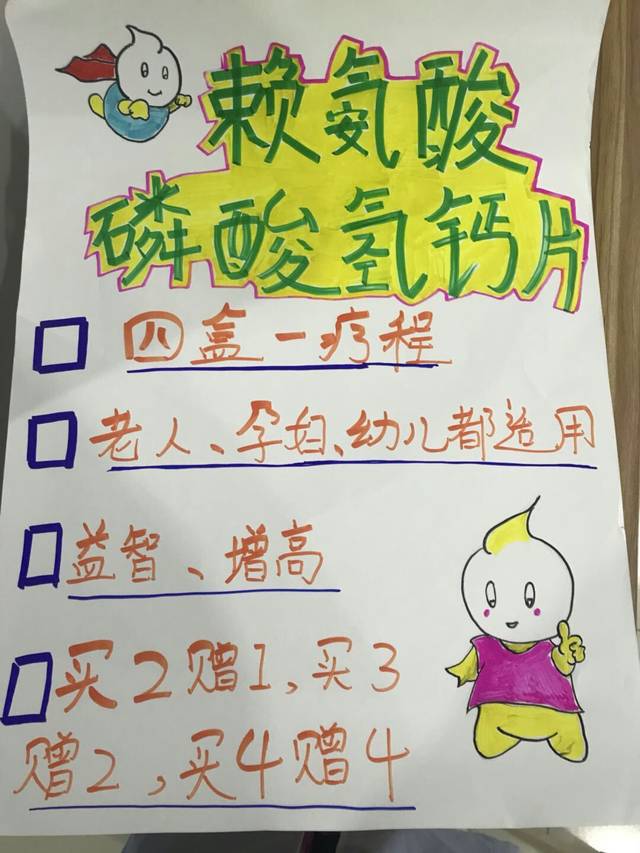 赖氨酸
磷酸氢钙片
四盒一疗程
老人、孕妇、幼儿都适用
益智、增高
买2赠1,买3
赠2,买4赠4